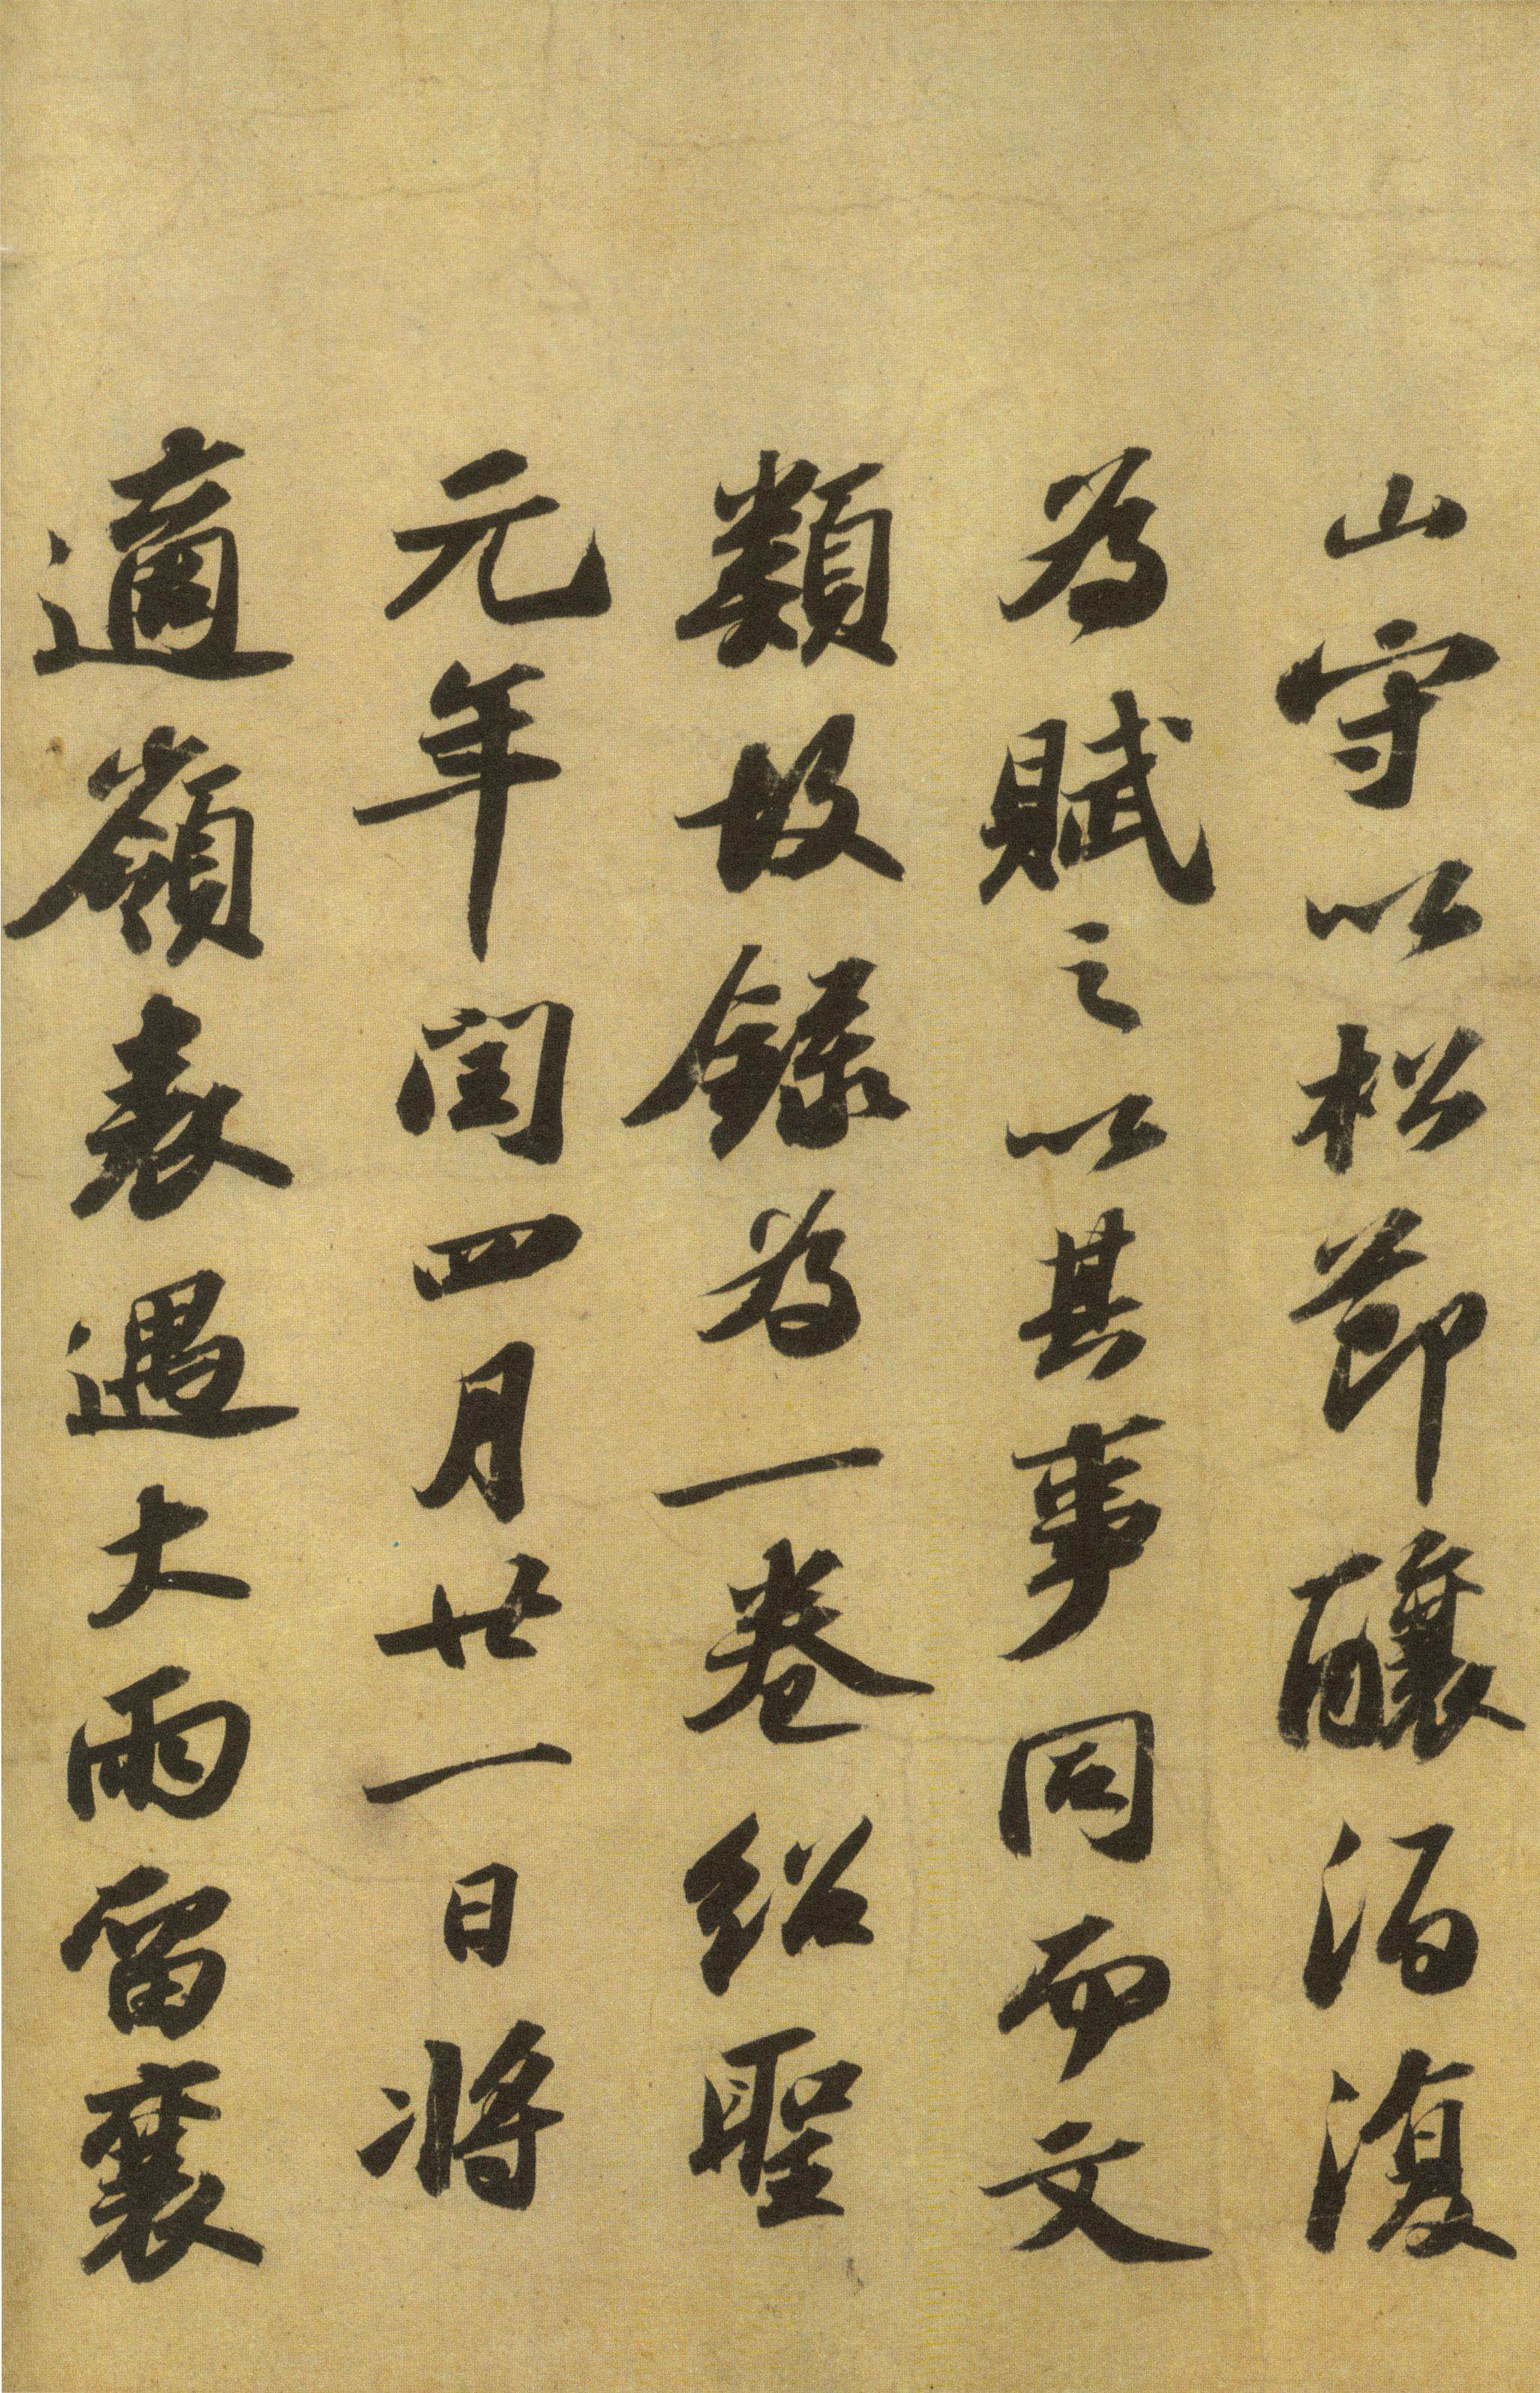 山守以松節釀酒復
為賦之以其事同而文
類故錄為一卷紹聖
元年閏四月廿一日將
適嶺表遇大雨留襄